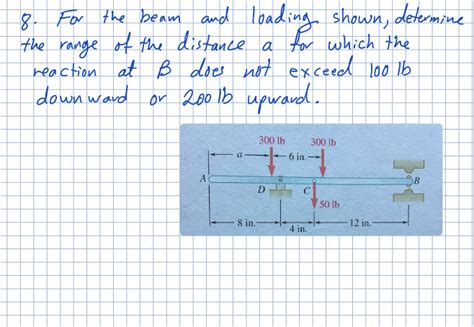 8. For the beam and loading shown, determine
the range of the distance a for which the
reaction at B does not exceed 100 lb
downward or 200 lb upward.
300 lb 300 lb
a 6 in.
A B
D C
50 lb
8 in. 4 in. 12 in.